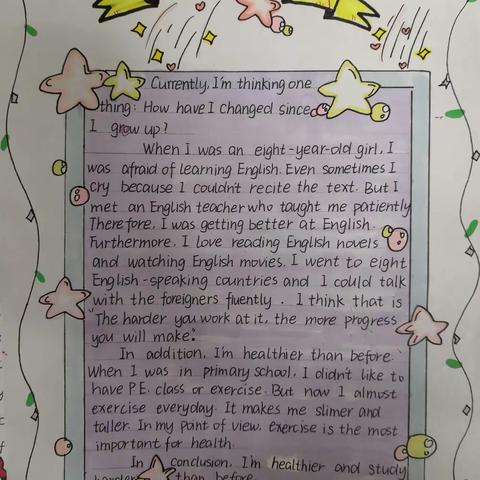 Currently, I'm thinking one
thing: How have I changed since
I grow up?
When I was an eight-year-old girl, I
was afraid of learning English. Even sometimes I
cry because I couldn't recite the text. But I
met an English teacher who taught me patiently
Therefore, I was getting better at English.
Furthermore, I love reading English novels
and watching English movies. I went to eight
English-speaking countries and I could talk
with the foreigners fluently. I think that is
"The harder you work at it, the more progress
you will make".
In addition, I'm healthier than before.
When I was in primary school, I didn't like to
have P.E. class or exercise. But now I almost
exercise everyday. It makes me slimer and
taller. In my point of view, Exercise is the most
important for health.
In conclusion, I'm healthier and study
harder than before